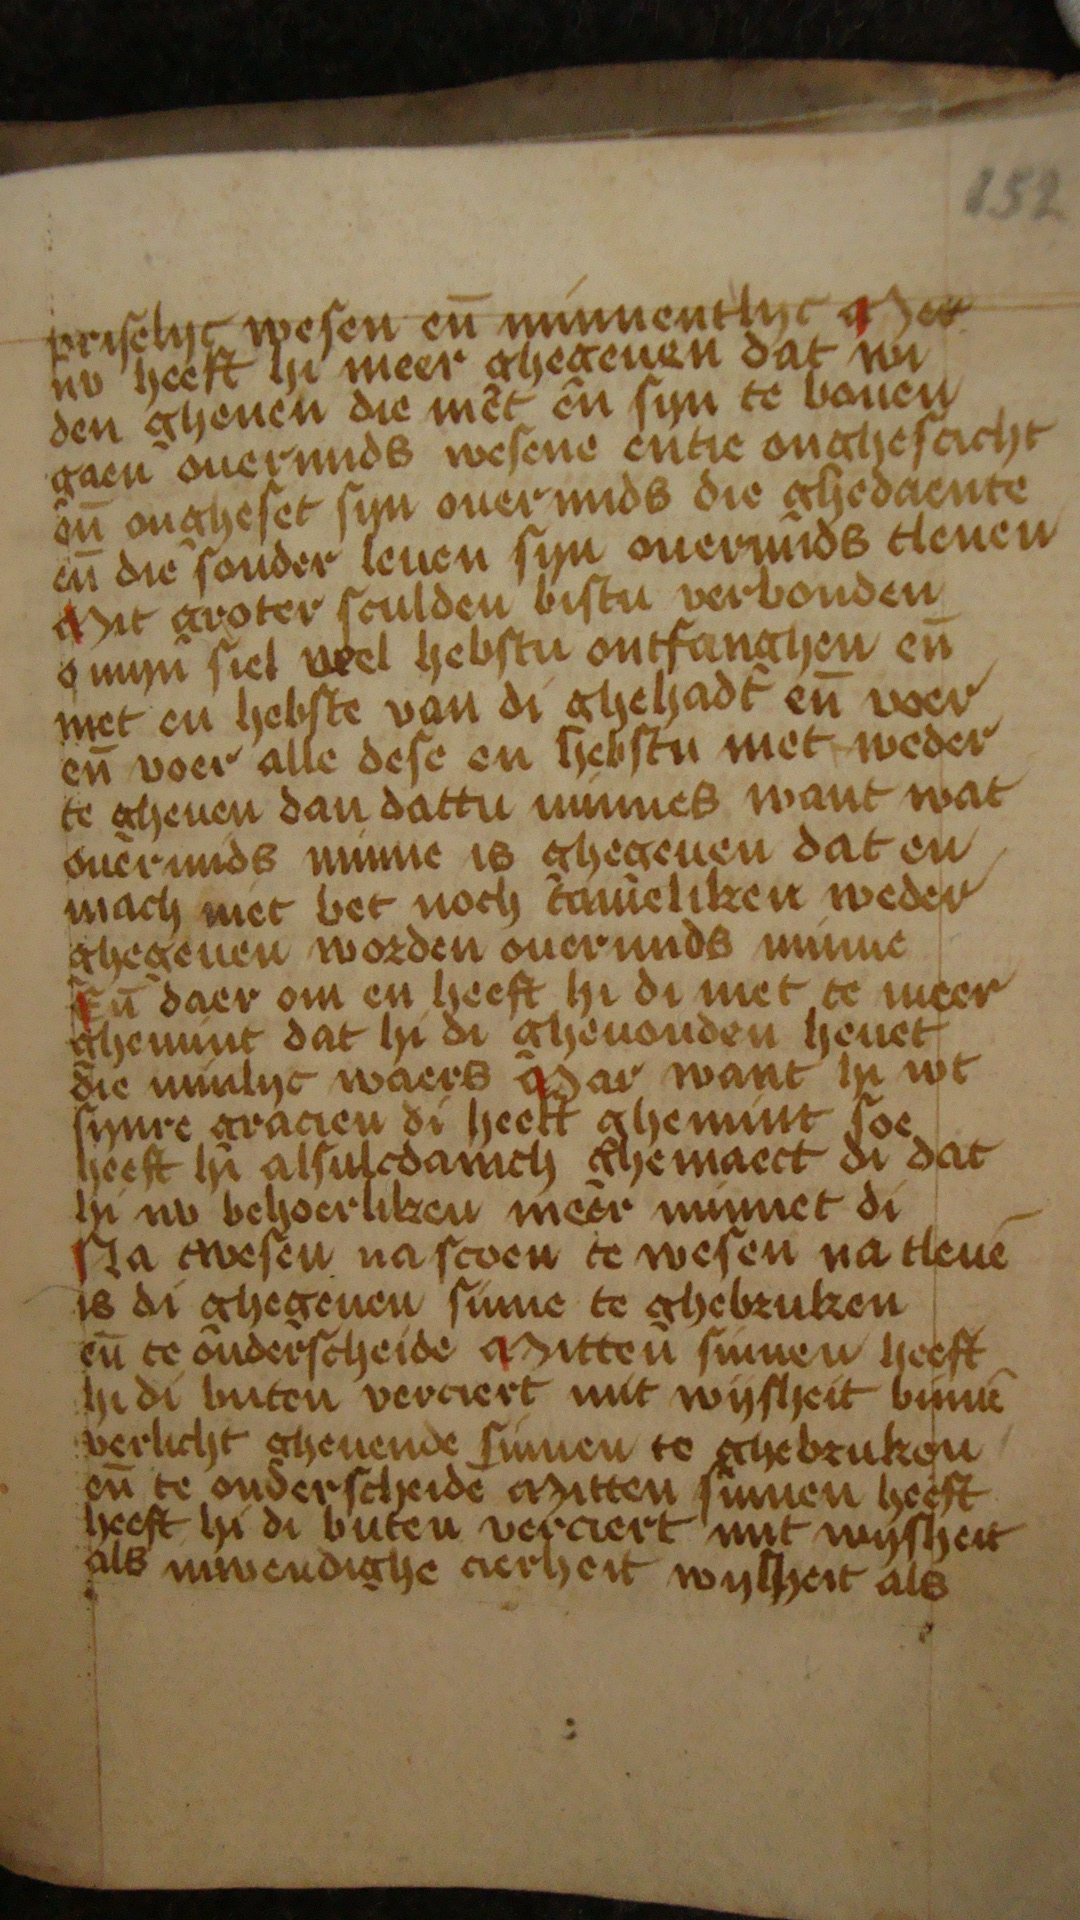 152
priselijc wesen en̄ minnentlijc Met
nv heeft hi meer ghegeuen dat wi
den gheuen die niet en sijn te bouen
gaen ouermids wesene entie onghesticht
en̄ ongheset sijn ouermids die ghedaente
en̄ die sonder leuen sijn ouermids tleuen
Mit groter sculden bistu verbonden
o mijn siel veel hebstu ontfanghen en̄
niet en hebste van di ghehadt en̄ voer
en̄ voer alle dese en hebstu niet weder
te gheuen dan dattu minnes want wat
ouermids minne is ghegeuen dat en
mach niet bet noch tameliken weder
ghegeuen worden ouermids minne
En̄ daer om en heeft hi di niet te meer
ghemint dat hi di gheuonden heuet
die minlijc waers Mar want hi wt
sijnre gracien di heeft ghemint soe
heeft hi alsulcdanich ghemaect di dat
hi nv behoerliken meer minnet di
Na twesen na scoen te wesen na tleuē
is di ghegeuen sinne te ghebruken
en̄ te onderscheide Mitten sinnen heeft
hi di buten verciert mit wijsheit binnē
verlicht gheuende sinnen te ghebruken
en̄ te onderscheide Mitten sinnen heeft
heeft hi di buten verciert mit wijsheit
als inwendighe cierheit wijsheit als